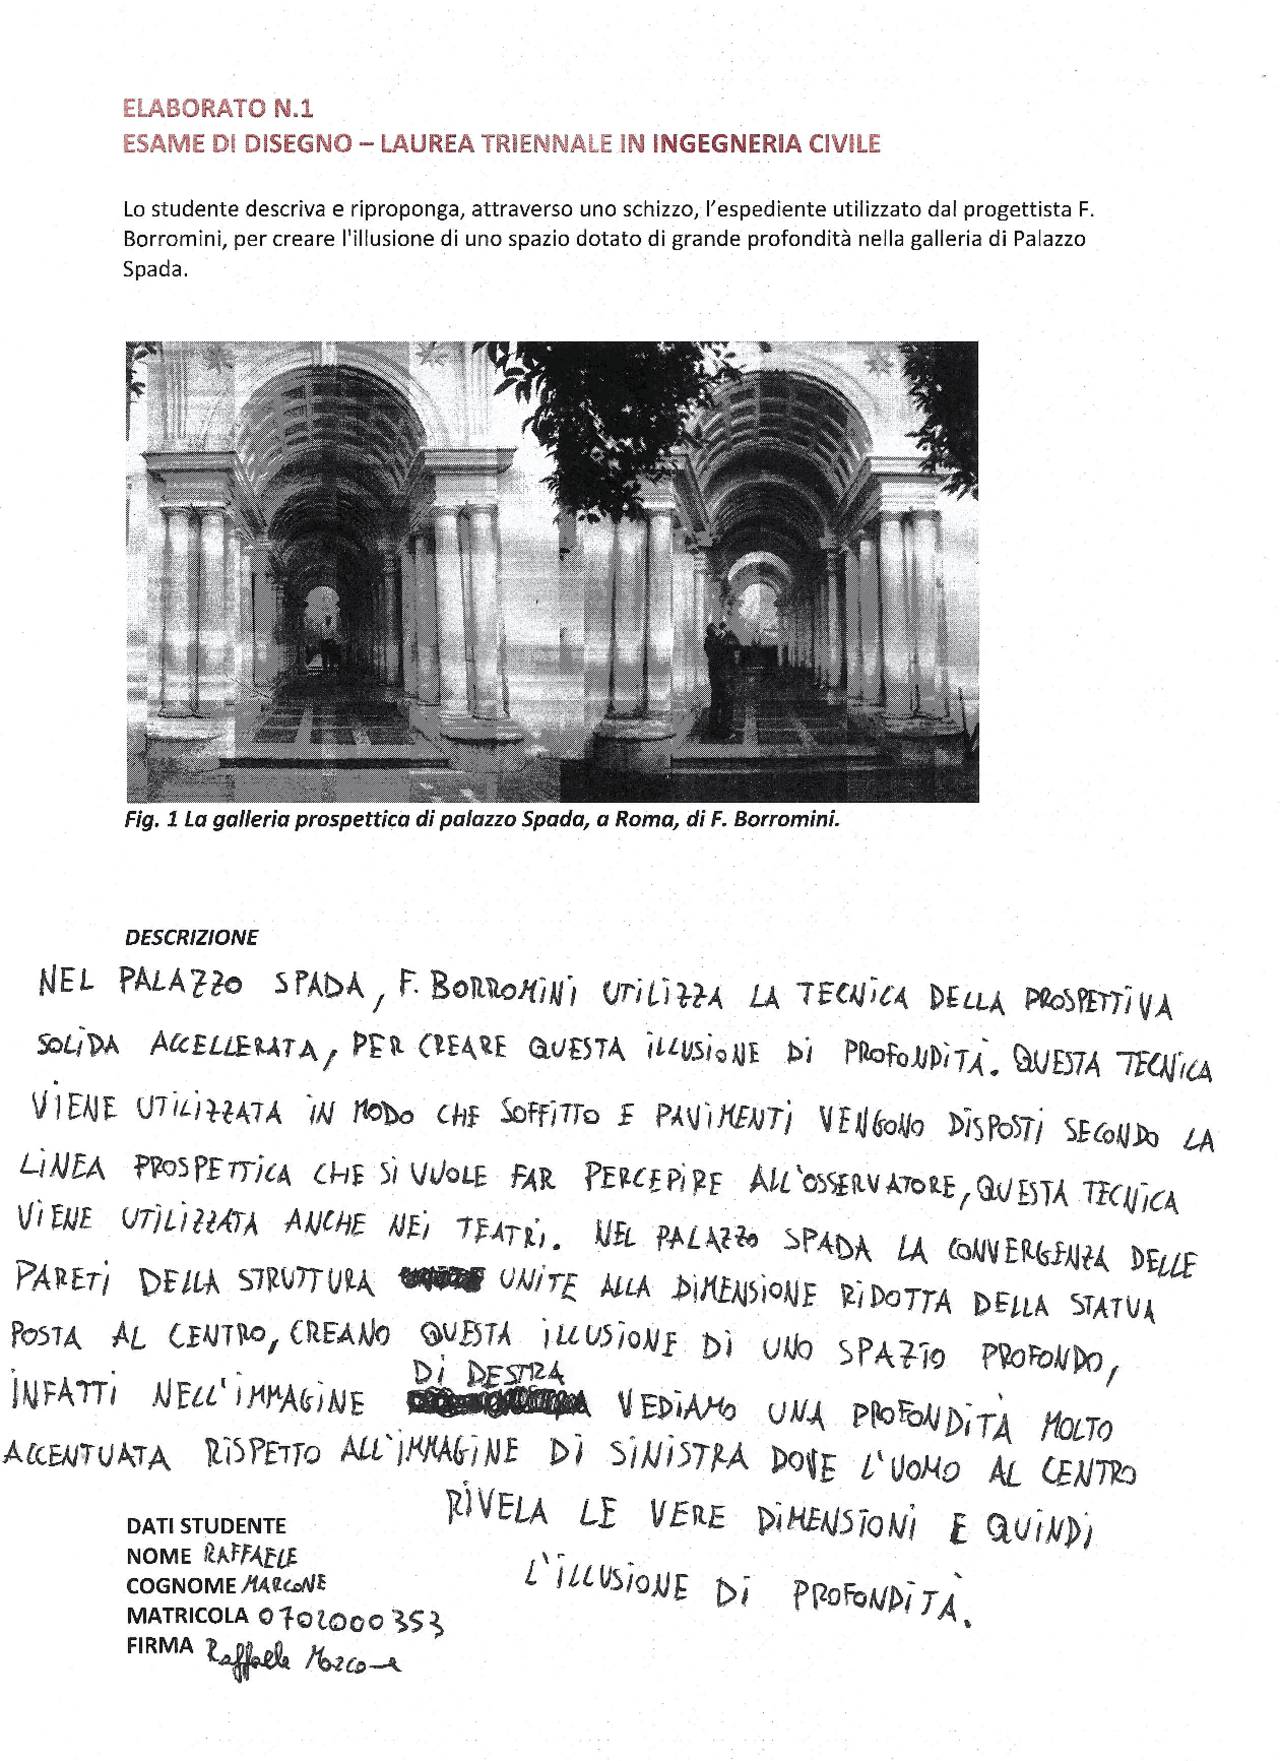 ELABORATO N.1
ESAME DI DISEGNO – LAUREA TRIENNALE IN INGEGNERIA CIVILE
Lo studente descriva e riproponga, attraverso uno schizzo, l'espediente utilizzato dal progettista F.
Borromini, per creare l'illusione di uno spazio dotato di grande profondità nella galleria di Palazzo
Spada.
Fig. 1 La galleria prospettica di palazzo Spada, a Roma, di F. Borromini.
DESCRIZIONE
NEL PALAZZO SPADA, F. BORROMINI UTILIZZA LA TECNICA DELLA PROSPETTIVA
SOLIDA ACCELLERATA, PER CREARE QUESTA ILLUSIONE DI PROFONDITÀ. QUESTA TECNICA
VIENE UTILIZZATA IN MODO CHE SOFFITTO E PAVIMENTI VENGONO DISPOSTI SECONDO LA
LINEA PROSPETTICA CHE SI VUOLE FAR PERCEPIRE ALL'OSSERVATORE, QUESTA TECNICA
VIENE UTILIZZATA ANCHE NEI TEATRI. NEL PALAZZO SPADA LA CONVERGENZA DELLE
PARETI DELLA STRUTTURA UNITE ALLA DIMENSIONE RIDOTTA DELLA STATUA
POSTA AL CENTRO, CREANO QUESTA ILLUSIONE DI UNO SPAZIO PROFONDO,
INFATTI NELL'IMMAGINE DI DESTRA VEDIAMO UNA PROFONDITÀ MOLTO
ACCENTUATA RISPETTO ALL'IMMAGINE DI SINISTRA DOVE L'UOMO AL CENTRO
RIVELA LE VERE DIMENSIONI E QUINDI
L'ILLUSIONE DI PROFONDITÀ.
DATI STUDENTE
NOME RAFFAELE
COGNOME MARCONE
MATRICOLA 0702000353
FIRMA Raffaele Marcone